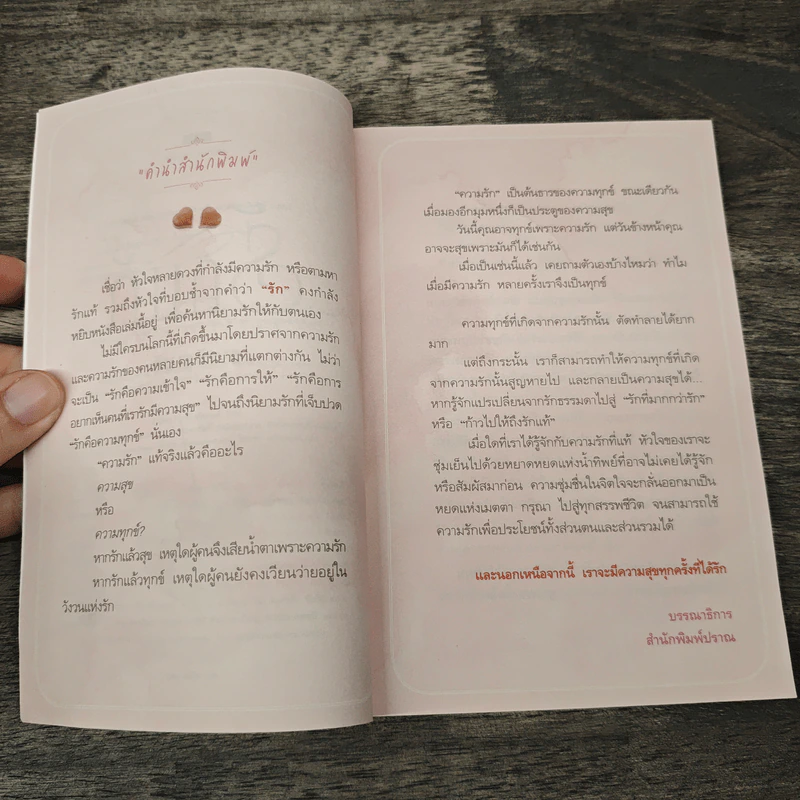 "คำนำสำนักพิมพ์"
เชื่อว่า หัวใจหลายดวงที่กำลังมีความรัก หรือตามหา
รักแท้ รวมถึงหัวใจที่บอบช้ำจากคำว่า "รัก" คงกำลัง
หยิบหนังสือเล่มนี้อยู่ เพื่อค้นหานิยามรักให้กับตนเอง
ไม่มีใครบนโลกนี้ที่เกิดขึ้นมาโดยปราศจากความรัก
และความรักของคนหลายคนก็มีนิยามที่แตกต่างกัน ไม่ว่า
จะเป็น "รักคือความเข้าใจ" "รักคือการให้" "รักคือการ
อยากเห็นคนที่เรารักมีความสุข" ไปจนถึงนิยามรักที่เจ็บปวด
"รักคือความทุกข์" นั่นเอง
"ความรัก" แท้จริงแล้วคืออะไร
ความสุข
หรือ
ความทุกข์?
หากรักแล้วสุข เหตุใดผู้คนจึงเสียน้ำตาเพราะความรัก
หากรักแล้วทุกข์ เหตุใดผู้คนยังคงเวียนว่ายอยู่ใน
วังวนแห่งรัก
"ความรัก" เป็นต้นธารของความทุกข์ ขณะเดียวกัน
เมื่อมองอีกมุมหนึ่งก็เป็นประตูของความสุข
วันนี้คุณอาจทุกข์เพราะความรัก แต่วันข้างหน้าคุณ
อาจจะสุขเพราะมันก็ได้เช่นกัน
เมื่อเป็นเช่นนี้แล้ว เคยถามตัวเองบ้างไหมว่า ทำไม
เมื่อมีความรัก หลายครั้งเราจึงเป็นทุกข์
ความทุกข์ที่เกิดจากความรักนั้น ตัดทำลายได้ยาก
มาก
แต่ถึงกระนั้น เราก็สามารถทำให้ความทุกข์ที่เกิด
จากความรักนั้นสูญหายไป และกลายเป็นความสุขได้...
หากรู้จักแปรเปลี่ยนจากรักธรรมดาไปสู่ "รักที่มากกว่ารัก"
หรือ "ก้าวไปให้ถึงรักแท้"
เมื่อใดที่เราได้รู้จักกับความรักที่แท้ หัวใจของเราจะ
ชุ่มเย็นไปด้วยหยาดหยดแห่งน้ำทิพย์ที่อาจไม่เคยได้รู้จัก
หรือสัมผัสมาก่อน ความชุ่มชื่นในจิตใจจะกลั่นออกมาเป็น
หยดแห่งเมตตา กรุณา ไปสู่ทุกสรรพชีวิต จนสามารถใช้
ความรักเพื่อประโยชน์ทั้งส่วนตนและส่วนรวมได้
และนอกเหนือจากนี้ เราจะมีความสุขทุกครั้งที่ได้รัก
บรรณาธิการ
สำนักพิมพ์ปราณ